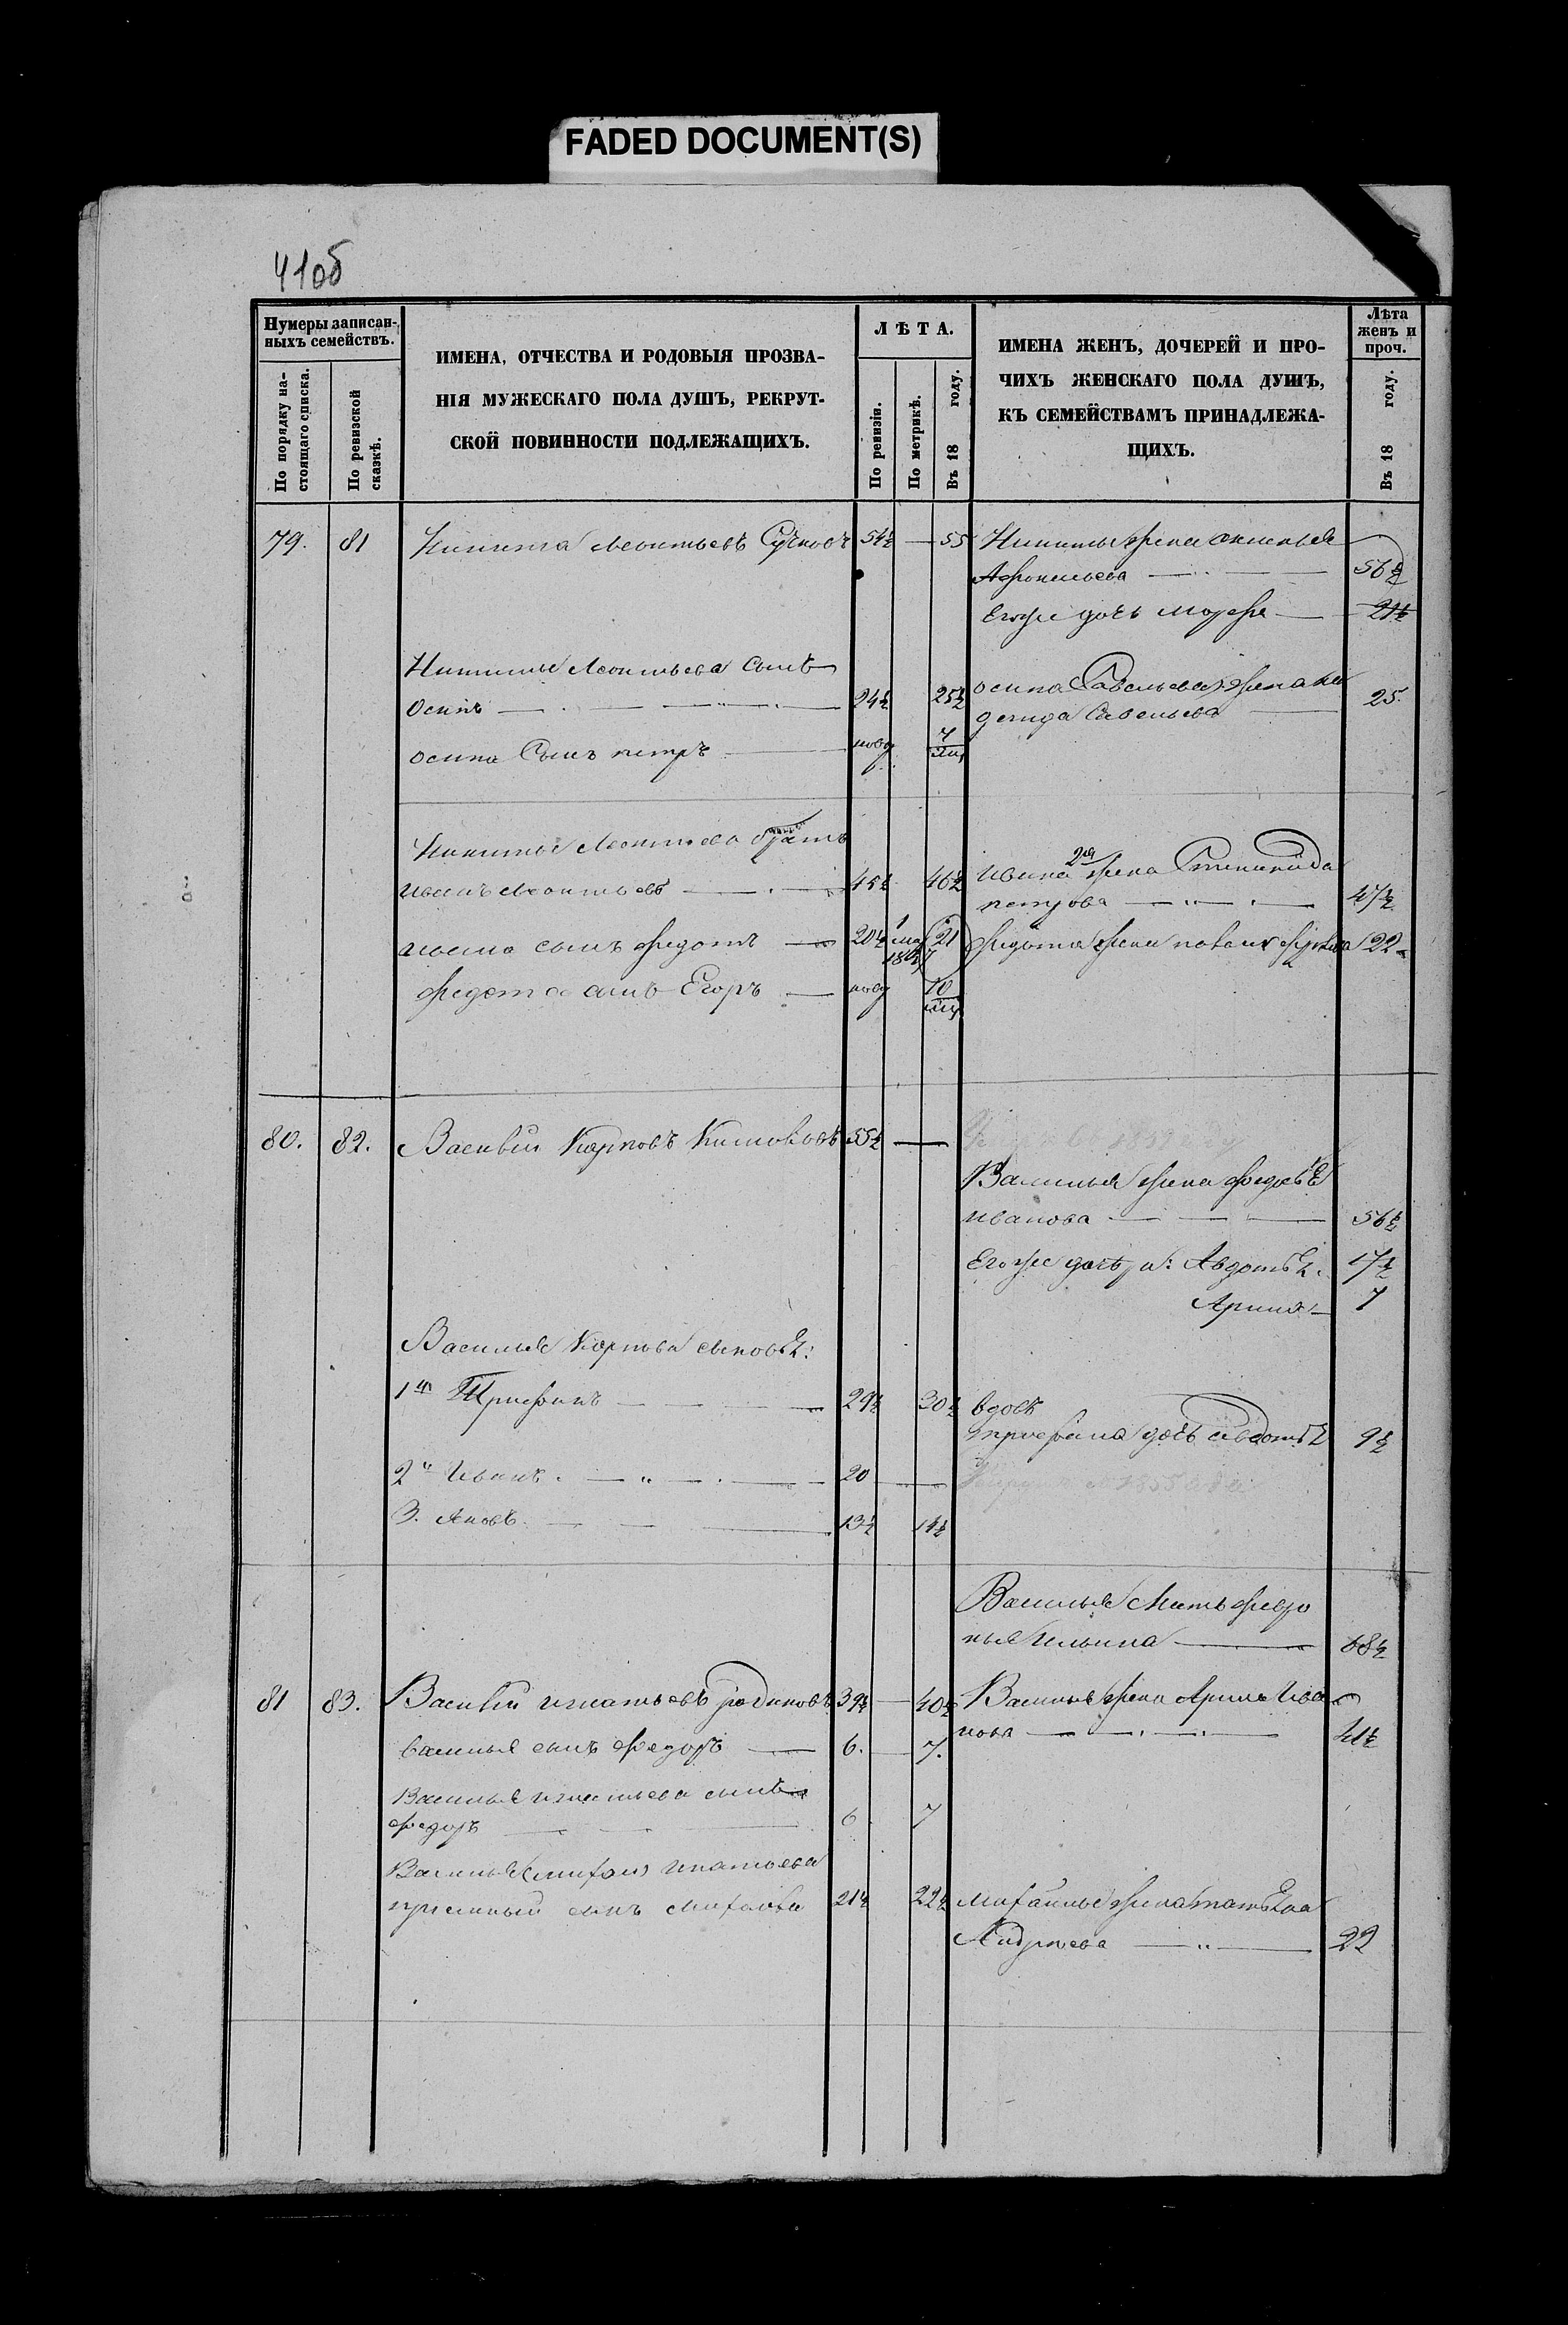 FADED DOCUMENT(S)
41об
Нумеры записан-
ныхъ семействъ.
По порядку на-
стоящаго списка.
По ревизской
сказкѣ.
ИМЕНА, ОТЧЕСТВА И РОДОВЫЯ ПРОЗВА-
НІЯ МУЖЕСКАГО ПОЛА ДУШЪ, РЕКРУТ-
СКОЙ ПОВИННОСТИ ПОДЛЕЖАЩИХЪ.
ЛѢТА.
По ревизіи.
По метрикѣ.
Въ 18 году.
ИМЕНА ЖЕНЪ, ДОЧЕРЕЙ И ПРО-
ЧИХЪ ЖЕНСКАГО ПОЛА ДУШЪ,
КЪ СЕМЕЙСТВАМЪ ПРИНАДЛЕЖА-
ЩИХЪ.
Лѣта
женъ и
проч.
Въ 18 году.
79. 81 Никита Леонтьевъ 54½ — 55 Никиты жена
56½
Егоже дочь 21½
Никиты Леонтьева сынъ
Осипъ 24½ 25½ осипа Савельева жена
Савельева 25
осипа Сынъ петръ новд 7
Никиты Леонтьева братъ
иванъ Леонтьевъ 45½ 46½ ивана 2я жена Степанида
петрова 47½
ивана сынъ федотъ 20½ 21 федота жена 22
федота сынъ Егоръ новд 10
80. 82. Василій Карповъ 55½ —
Василья жена
иванова 56½
Егоже дочери: Авдотья 17½
Арина 7
Василья Карпова сыновья:
1й Трифонъ 29½ 30½ вдова
трифона дочь авдотья 9½
2й Иванъ 20 —
3. Яковъ 13½ 14½
Василья Мать февро
нья ильина 68½
81 83. Василій игнатьевъ родионовъ 39½ — 40½ Василья жена Арина Ива
нова 41½
василья сынъ федоръ 6. — 7.
Василья игнатьева сынъ
федоръ 6 7
Василья игнатьева
пріемный сынъ 21½ 22½ михайлы жена татьяна
Андреева 22